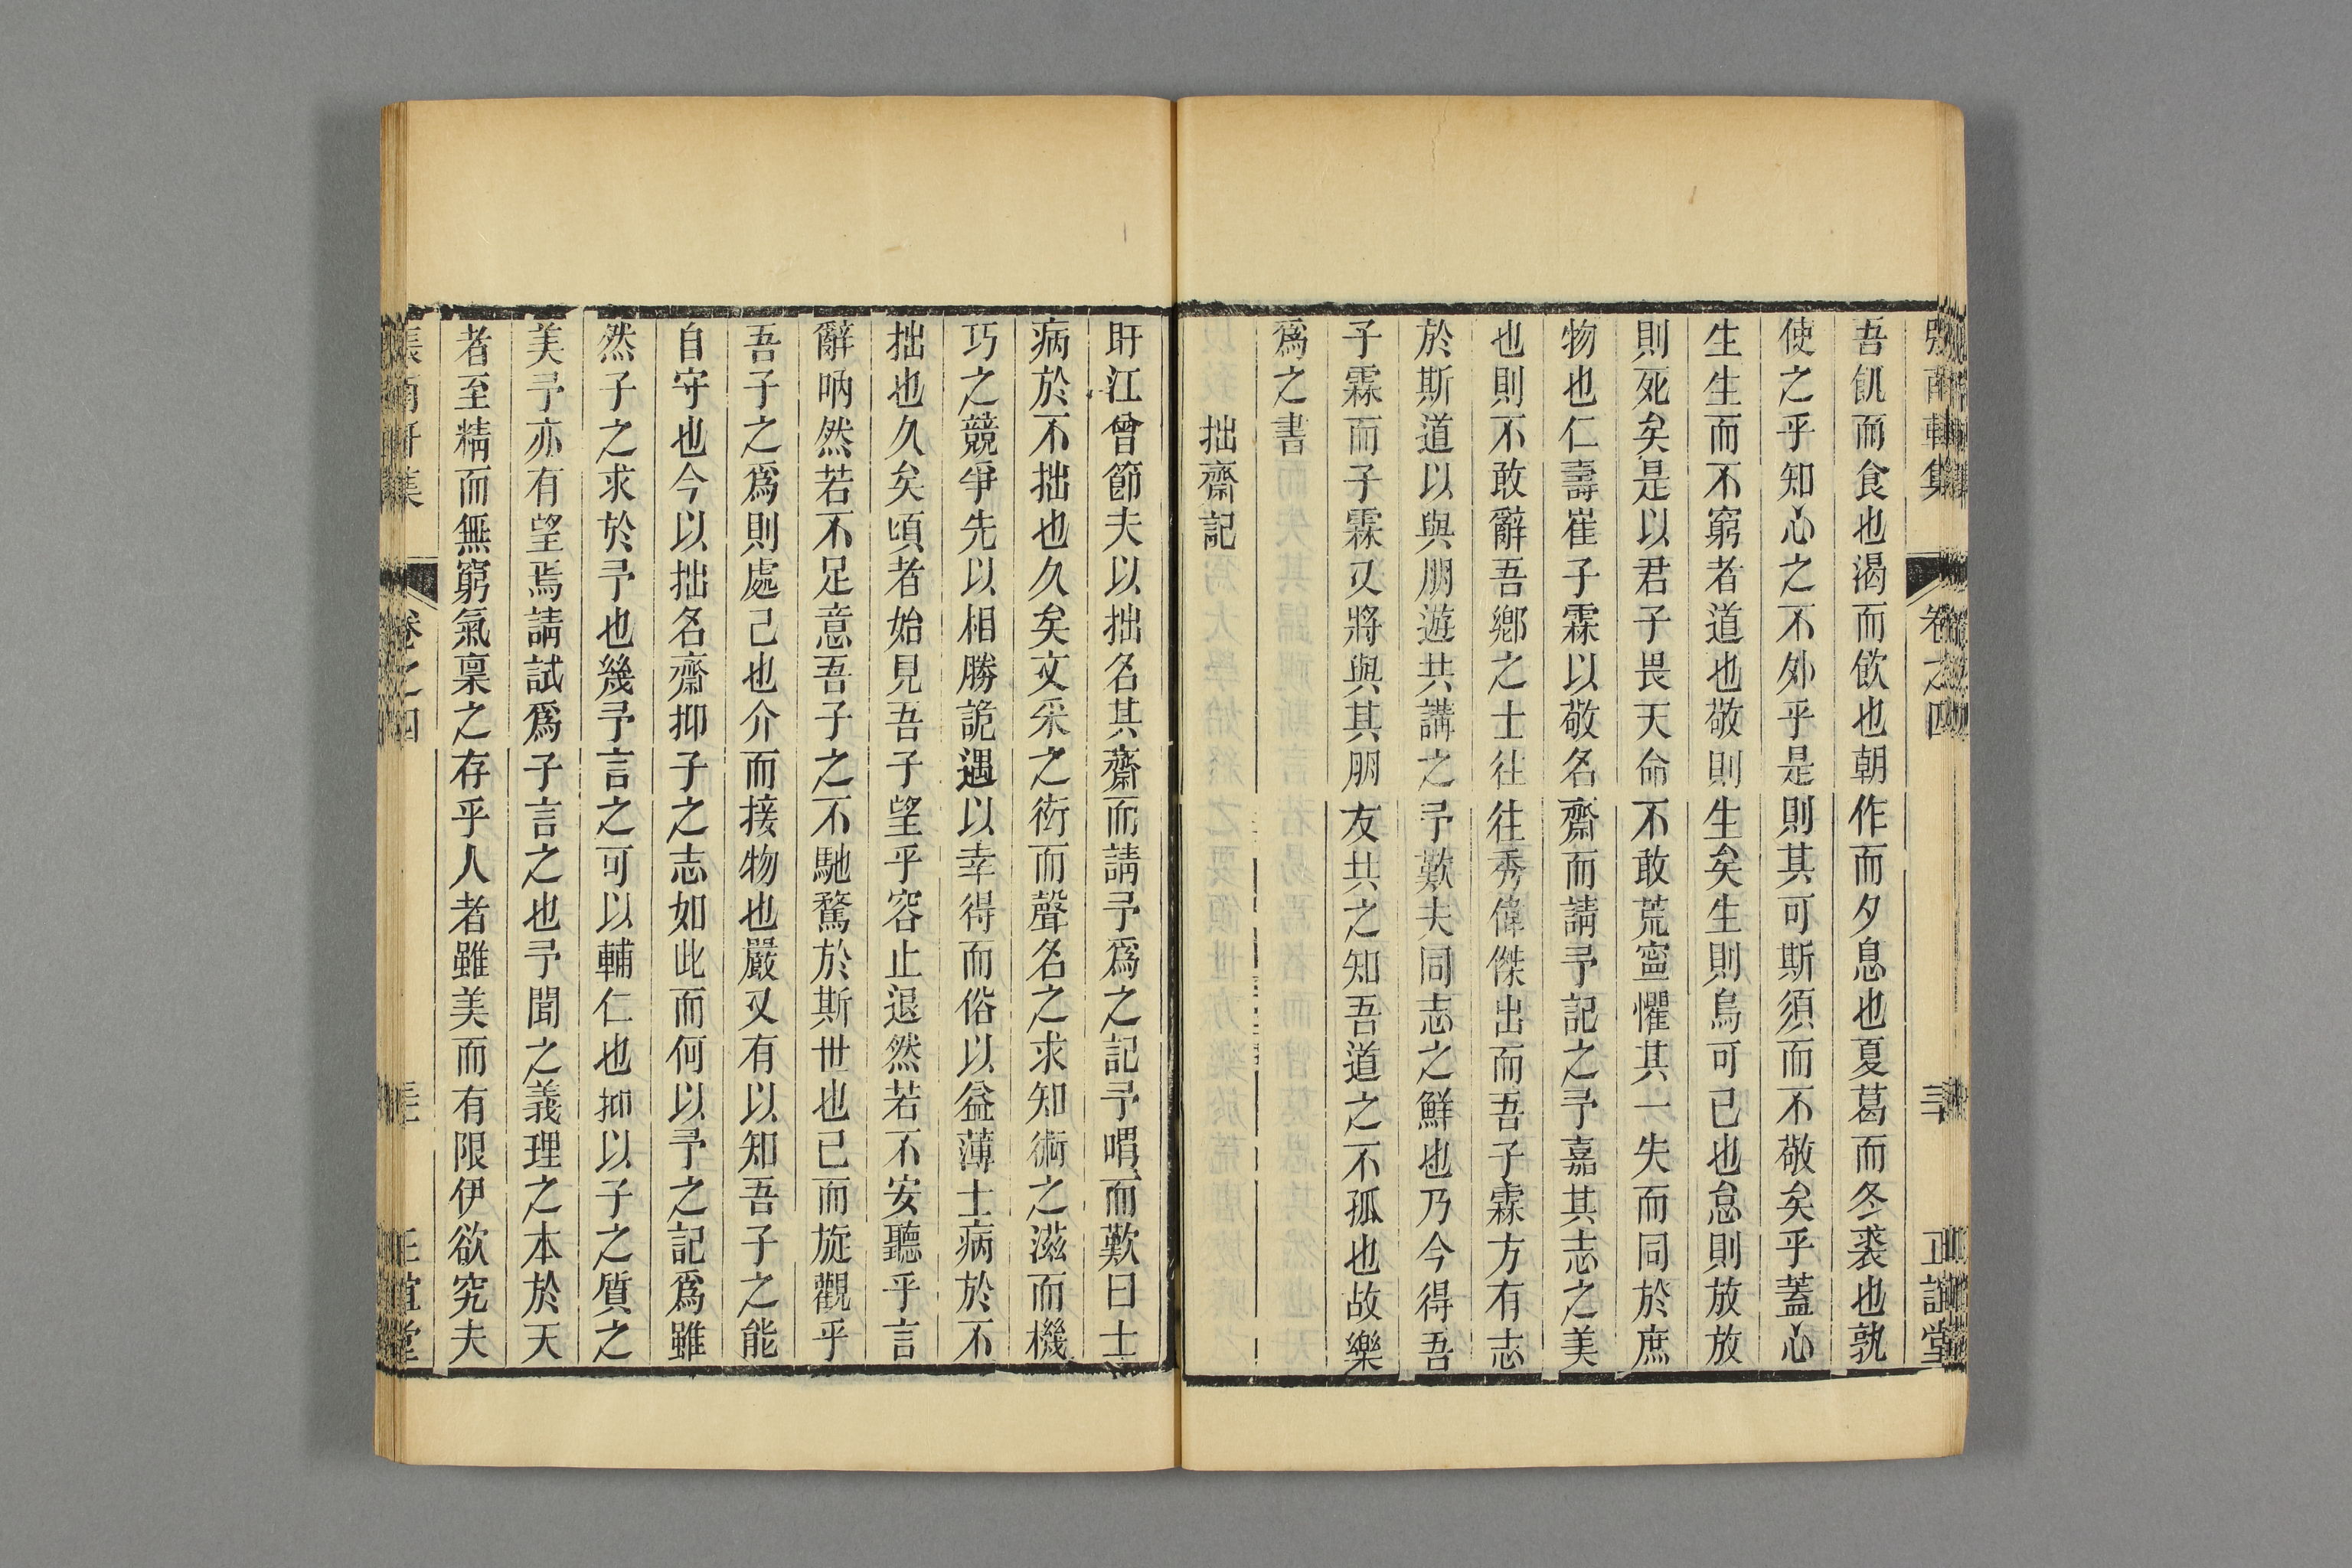 吾飢而食也渴而飲也朝作而夕息也夏葛而冬裘也孰
使之乎知心之不外乎是則其可斯須而不敬矣乎蓋心
生生而不窮者道也敬則生矣生則烏可已也怠則放放
則死矣是以君子畏天命不敢荒寧懼其一失而同於庶
物也仁壽崔子霖以敬名齋而請予記之予嘉其志之美
也則不敢辭吾鄉之士往往秀偉傑出而吾子霖方有志
於斯道以與朋遊共講之予歎夫同志之鮮也乃今得吾
子霖而子霖又將與其朋友共之知吾道之不孤也故樂
爲之書
拙齋記
盱江曾節夫以拙名其齋而請予爲之記予喟而歎曰士
病於不拙也久矣文采之衒而聲名之求知術之滋而機
巧之競爭先以相勝詭遇以幸得而俗以益薄士病於不
拙也久矣頃者始見吾子望乎容止退然若不安聽乎言
辭吶然若不足意吾子之不馳騖於斯世也已而旋觀乎
吾子之爲則處己也介而接物也嚴又有以知吾子之能
自守也今以拙名齋抑子之志如此而何以予之記爲雖
然子之求於予也幾予言之可以輔仁也抑以子之質之
美予亦有望焉請試爲子言之也予聞之義理之本於天
者至精而無窮氣稟之存乎人者雖美而有限伊欲究夫
卷之四